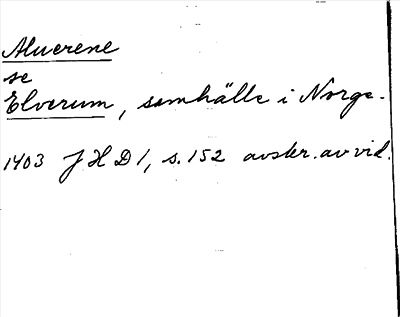 Aluerene
se
Elverum, samhälle i Norge.
1403 JHD 1, s. 152 avskr. av vid.